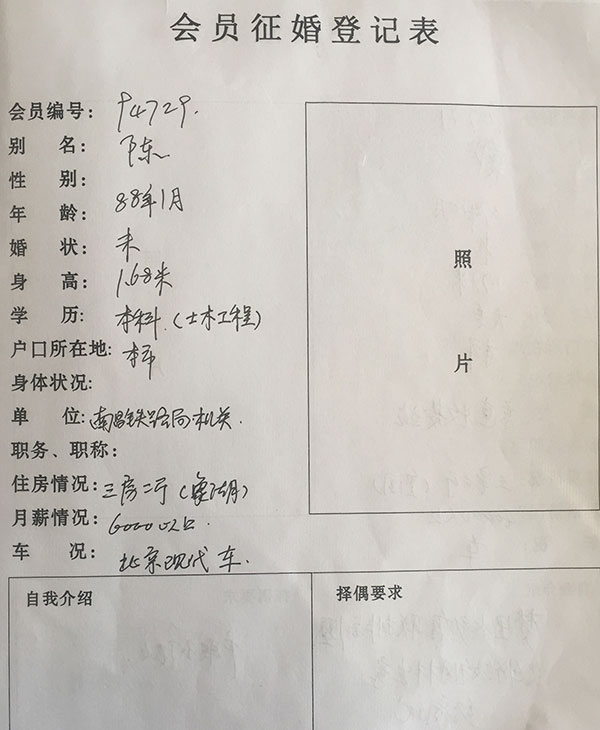 会员征婚登记表
会员编号: 94729.
别 名: 陈东
性 别:
年 龄: 88年1月
婚 状: 未
身 高: 1.68米
学 历: 本科.(土木工程)
户口所在地: 本市
身体状况:
单 位: 南昌铁路局机关.
职务、职称:
住房情况: 三房二厅(象湖)
月薪情况: 6000以上.
车 况: 北京现代车.
照
片
自我介绍
择偶要求